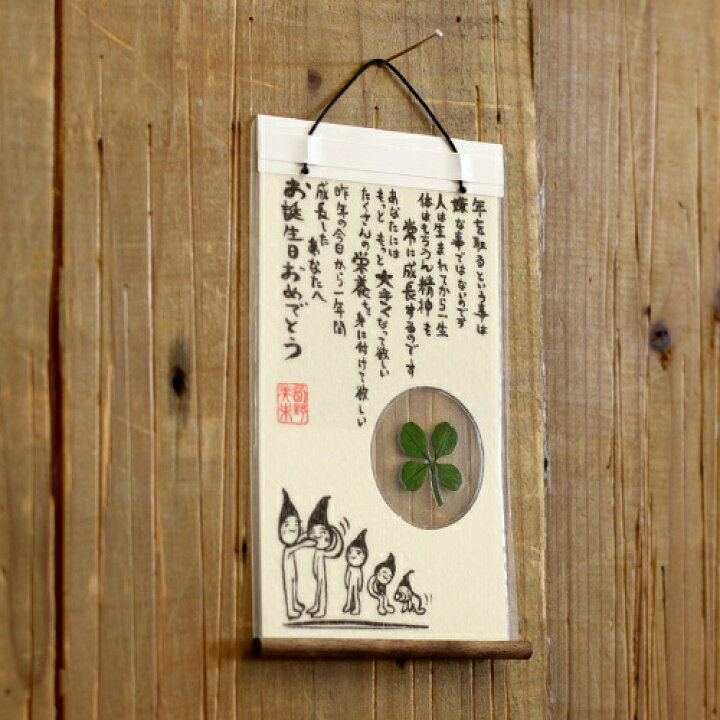 年を取るという事は
嫌な事ではないのです
人は生まれてから一生
体はもちろん精神も
常に成長するのです
あなたには
もっともっと大きくなって欲しい
たくさんの栄養を身に付けて欲しい
昨年の今日から一年間
成長したあなたへ
お誕生日おめでとう